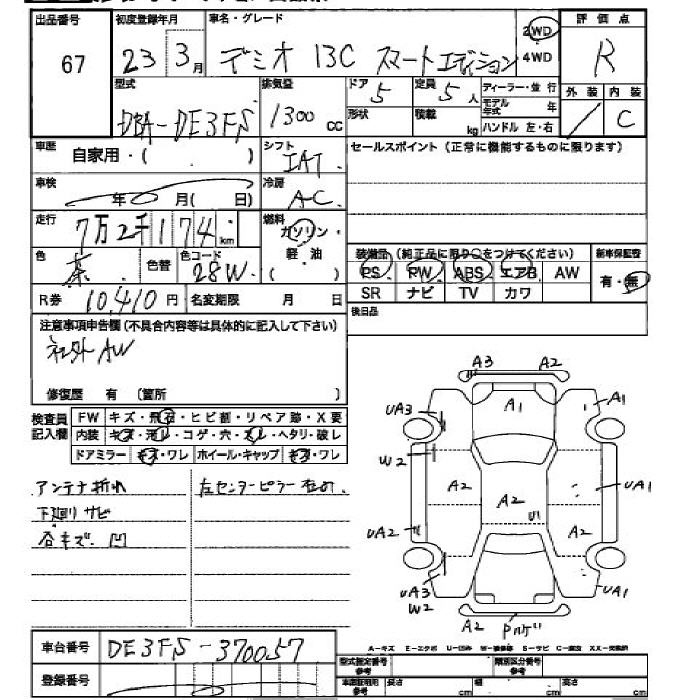 出品番号 67
初度登録年月 23 3月
車名・グレード デミオ 13C スマートエディション 2WD 4WD
評価点 R
型式 DBA-DE3FS
排気量 1300 cc
ドア 5
形状
定員 5人
積載 kg
ディーラー・並行
モデル年式 年
ハンドル 左・右
外装 内装 C
車歴 自家用・( )
シフト IAT
セールスポイント(正常に機能するものに限ります)
車検 年 月( 日)
冷房 AC
走行 7万2千174km
燃料 ガソリン・軽油 ( )
色 茶 色替 色コード 28W
装備品(純正品に限り○をつけてください)
PS PW ABS エアB AW
SR ナビ TV カワ
新車保証書 有・無
R券 10,410円 名変期限 月 日
後日品
注意事項申告欄(不具合内容等は具体的に記入して下さい)
社外AW
修復歴 有 〔箇所 〕
検査員記入欄
FW キズ・飛石・ヒビ割・リペア跡・X要
内装 キズ・汚レ・コゲ・穴・スレ・ヘタリ・破レ
ドアミラー キズ・ワレ ホイール・キャップ キズ・ワレ
アンテナ折れ
下廻りサビ
各キズ、凹
左センターピラー
A3 A2
UA3 A1 A1
W2
A2 A2 UA1
UA2 U1 A2
UA3 UA1
W2
A2
A-キズ E-エクボ U-凹み W-補修跡 S-サビ C-腐食 XX-交換済
車台番号 DE3FS-370057
登録番号
型式指定番号 参考
類別区分番号 参考
車庫証明用 参考 長さ cm 幅 cm 高さ cm